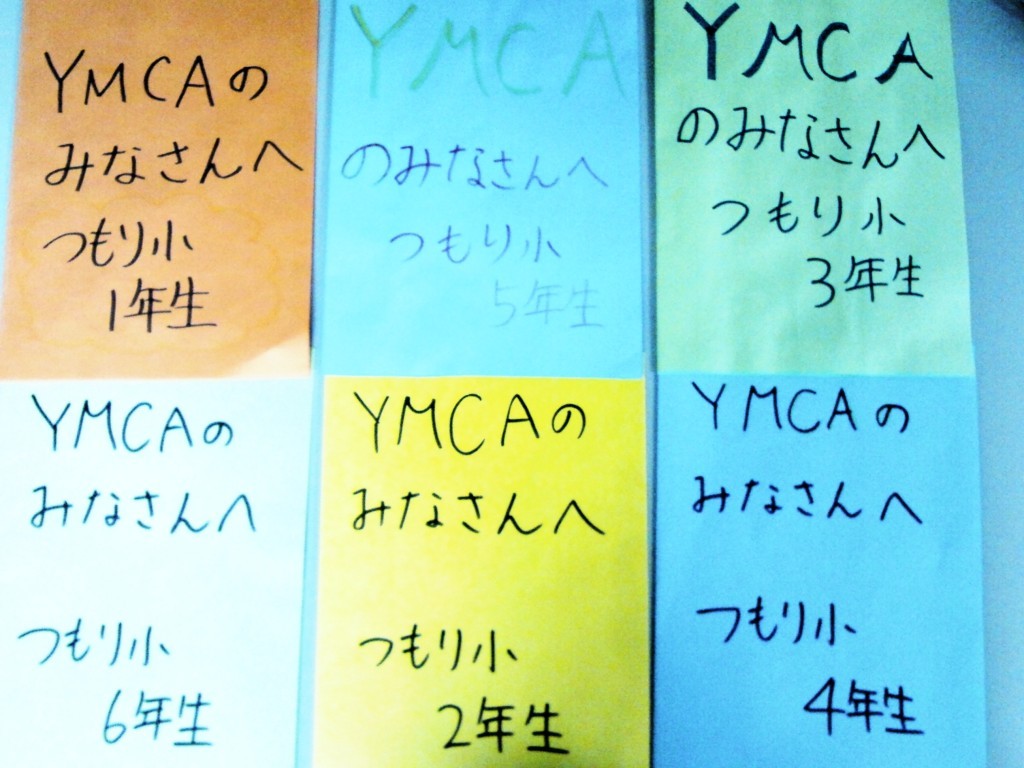 YMCAの
みなさんへ
つもり小
1年生
YMCA
のみなさんへ
つもり小
5年生
YMCA
のみなさんへ
つもり小
3年生
YMCAの
みなさんへ
つもり小
6年生
YMCAの
みなさんへ
つもり小
2年生
YMCAの
みなさんへ
つもり小
4年生